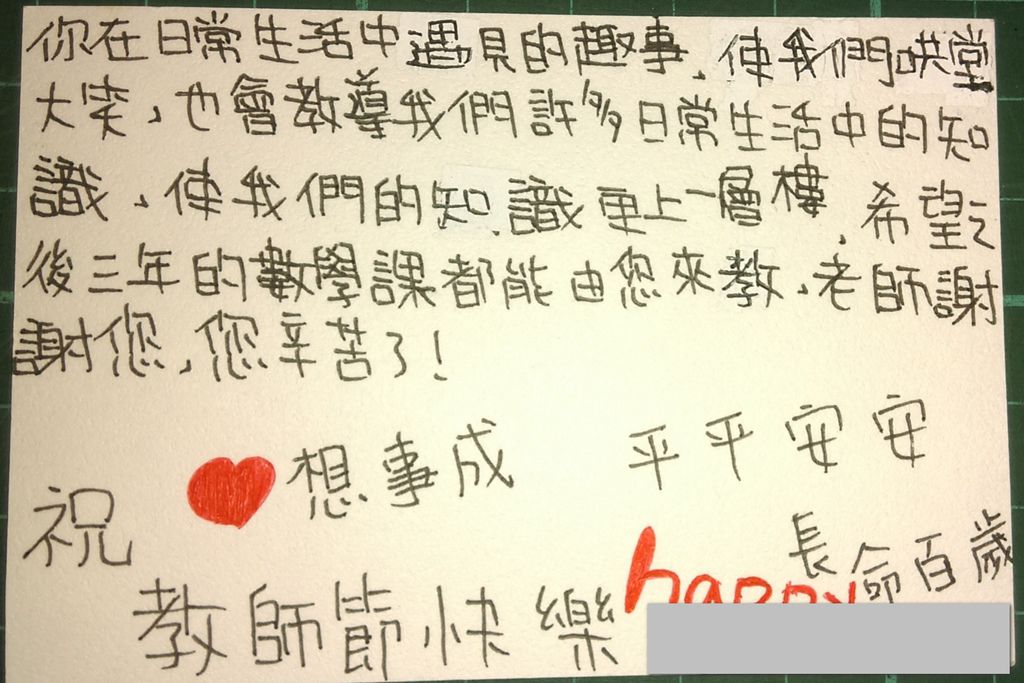 你在日常生活中遇見的趣事,使我們哄堂
大笑,也會教導我們許多日常生活中的知
識,使我們的知識更上一層樓,希望之
後三年的數學課都能由您來教,老師謝
謝您,您辛苦了!
祝 ❤想事成 平平安安
長命百歲
教師節快樂 happy